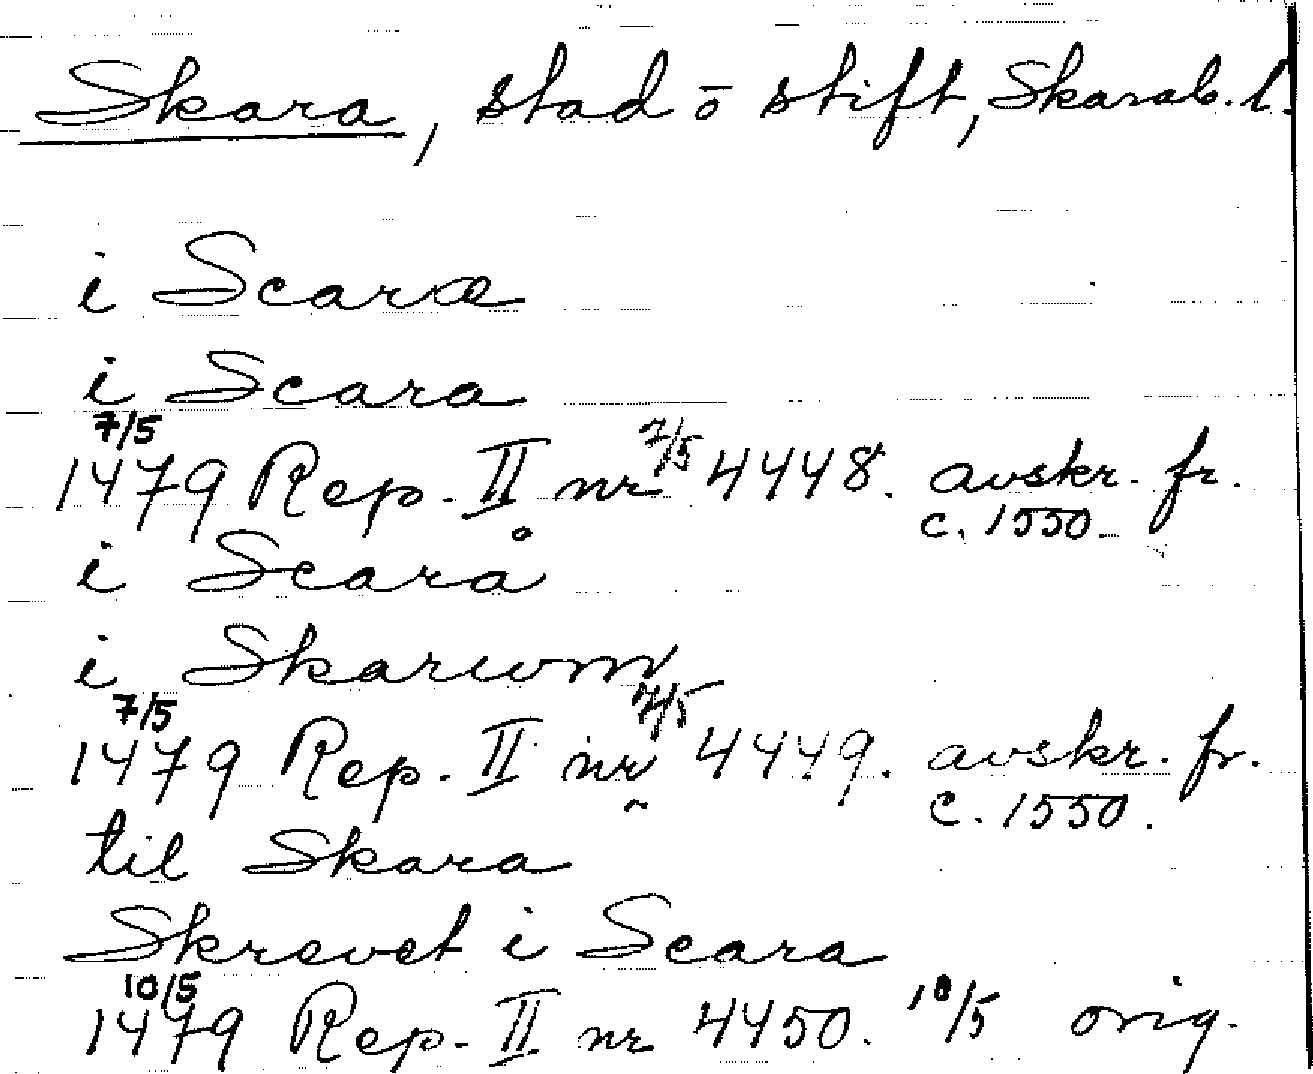 Skara, stad o stift, Skarab. l.
i Scaræ
i Scara
7/5
1479 Rep. II nr 7/5 4448. avskr. fr. c. 1550.
i Scarå
i Skarum
7/5
1479 Rep. II nr 7/5 4449. avskr. fr. c. 1550.
til Skara
Skrevet i Scara
10/5
1479 Rep. II nr 4450. 10/5 orig.